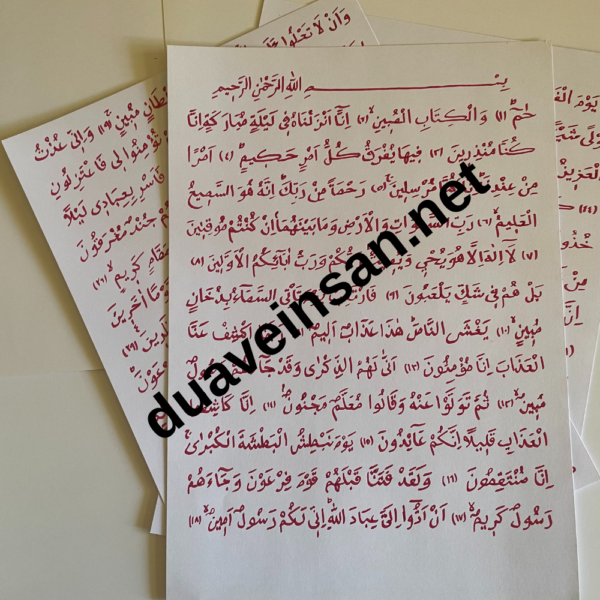 وَاَنْ لَا تَعْلُوا
مُبٖينٍ (١٩) وَاِنّٖى عُذْتُ
تُؤْمِنُوا لٖى فَاعْتَزِلُونِ
فَاَسْرِ بِعِبَادٖى لَيْلًا
جُنْدٌ مُغْرَقُونَ
كَرٖيمٍ (٢٦)
اٰخَرٖينَ
بِسْمِ اللّٰهِ الرَّحْمٰنِ الرَّحٖيمِ
حٰمٓ (١) وَالْكِتَابِ الْمُبٖينِ (٢) اِنَّٓا اَنْزَلْنَاهُ فٖى لَيْلَةٍ مُبَارَكَةٍ اِنَّا
كُنَّا مُنْذِرٖينَ (٣) فٖيهَا يُفْرَقُ كُلُّ اَمْرٍ حَكٖيمٍ (٤) اَمْرًا
مِنْ عِنْدِنَا اِنَّا كُنَّا مُرْسِلٖينَ (٥) رَحْمَةً مِنْ رَبِّكَ اِنَّهُ هُوَ السَّمٖيعُ
الْعَلٖيمُ (٦) رَبِّ السَّمٰوَاتِ وَالْاَرْضِ وَمَا بَيْنَهُمَا اِنْ كُنْتُمْ مُوقِنٖينَ
(٧) لَٓا اِلٰهَ اِلَّا هُوَ يُحْيٖ وَيُمٖيتُ رَبُّكُمْ وَرَبُّ اٰبَٓائِكُمُ الْاَوَّلٖينَ (٨)
بَلْ هُمْ فٖى شَكٍّ يَلْعَبُونَ (٩) فَارْتَقِبْ يَوْمَ تَاْتِى السَّمَٓاءُ بِدُخَانٍ
مُبٖينٍ (١٠) يَغْشَى النَّاسَ هٰذَا عَذَابٌ اَلٖيمٌ (١١) رَبَّنَا اكْشِفْ عَنَّا
الْعَذَابَ اِنَّا مُؤْمِنُونَ (١٢) اَنّٰى لَهُمُ الذِّكْرٰى وَقَدْ جَٓاءَهُمْ رَسُولٌ
مُبٖينٌ (١٣) ثُمَّ تَوَلَّوْا عَنْهُ وَقَالُوا مُعَلَّمٌ مَجْنُونٌ (١٤) اِنَّا كَاشِفُوا
الْعَذَابِ قَلٖيلًا اِنَّكُمْ عَٓائِدُونَ (١٥) يَوْمَ نَبْطِشُ الْبَطْشَةَ الْكُبْرٰى
اِنَّا مُنْتَقِمُونَ (١٦) وَلَقَدْ فَتَنَّا قَبْلَهُمْ قَوْمَ فِرْعَوْنَ وَجَٓاءَهُمْ
رَسُولٌ كَرٖيمٌ (١٧) اَنْ اَدُّٓوا اِلَىَّ عِبَادَ اللّٰهِ اِنّٖى لَكُمْ رَسُولٌ اَمٖينٌ (١٨)
الْعَزٖيزُ
مِنْ
duaveinsan.net